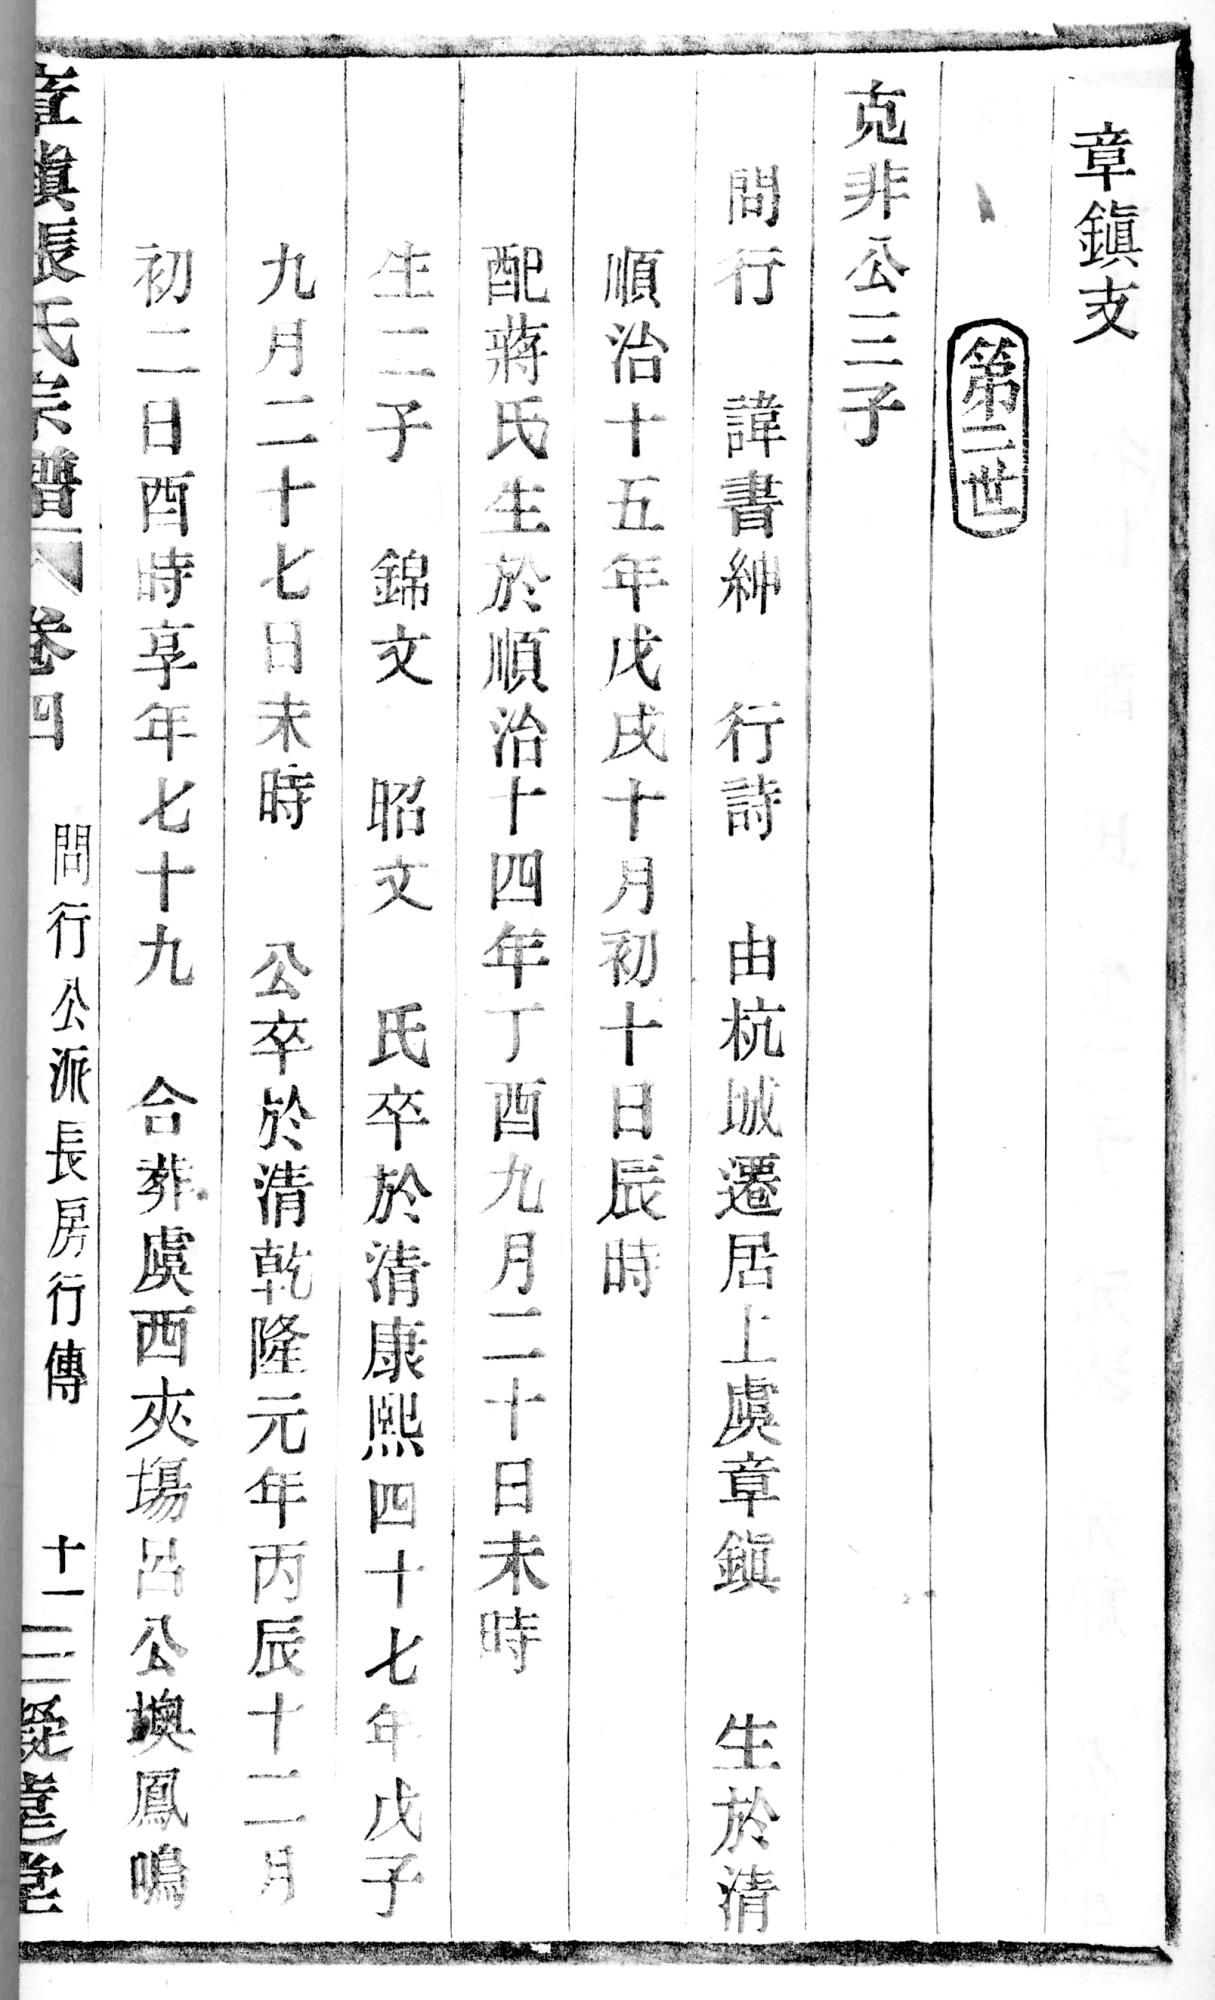 章鎭支
第二世
克非公三子
問行　諱書紳　行詩　由杭城遷居上虞章鎭　生於清
順治十五年戊戌十月初十日辰時
配蔣氏生於順治十四年丁酉九月二十日未時
生二子　錦文　昭文　氏卒於清康熙四十七年戊子
九月二十七日未時　公卒於清乾隆元年丙辰十二月
初二日酉時享年七十九　合葬虞西夾塲呂公墺鳳鳴
章鎭張氏宗譜　卷四　問行公派長房行傳　十一　凝壼堂